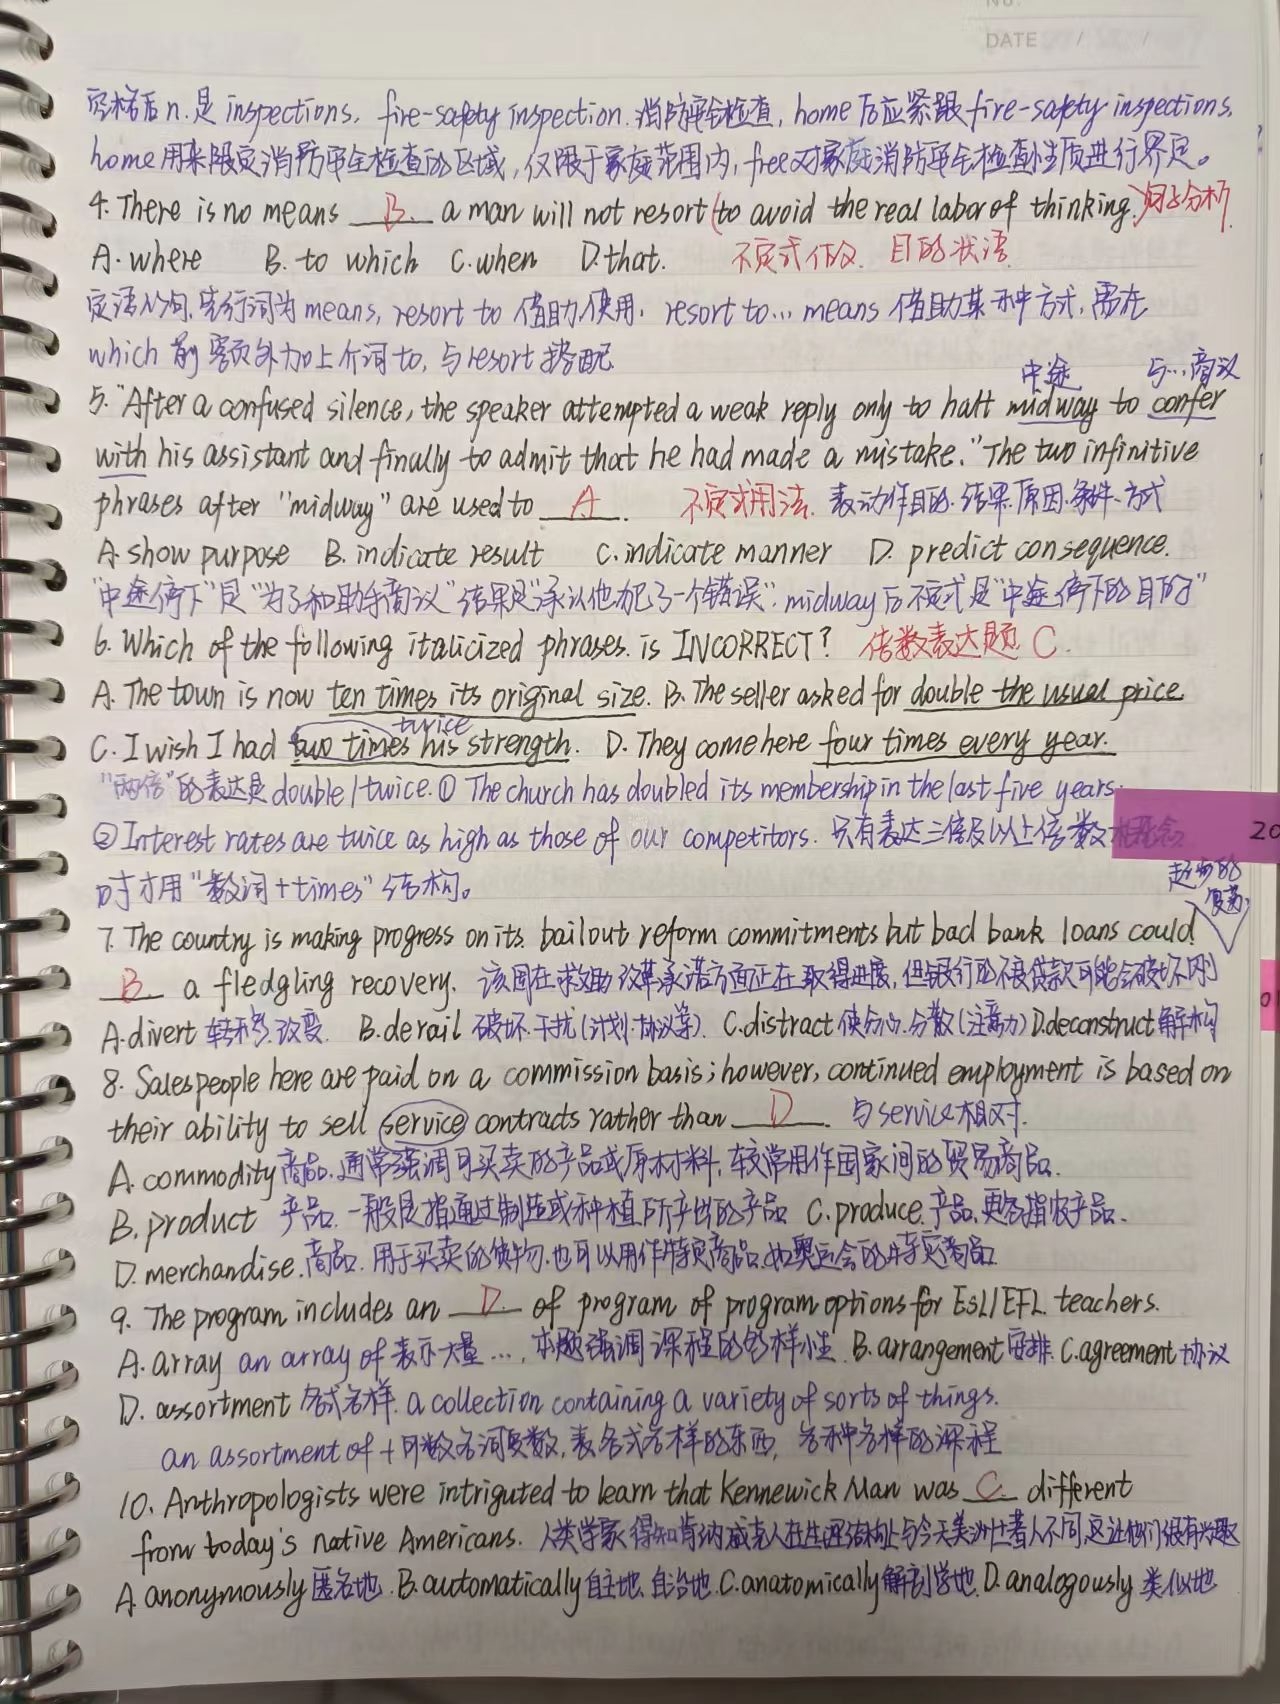 NO.
DATE / /
空格后n.是inspections, fire-safety inspection.消防安全检查, home后应紧跟fire-safety inspections,
home用来限定消防安全检查的区域,仅限于家庭范围内,free对家庭消防安全检查性质进行界定。
4. There is no means B. a man will not resort (to avoid the real labor of thinking.)句子分析
A. where B. to which C. when D. that. 不定式作 目的状语
定语从句,先行词为means, resort to 借助,使用. resort to... means 借助某种方式,需在
which前额外加上介词to,与resort搭配
中途 与…商议
5. "After a confused silence, the speaker attempted a weak reply only to halt midway to confer
with his assistant and finally to admit that he had made a mistake." The two infinitive
phrases after "midway" are used to A. 不定式用法. 表动作目的.结果.原因.条件.方式
A. show purpose B. indicate result C. indicate manner D. predict consequence.
"中途停下"是"为了和助手商议"结果是"承认他犯了一个错误". midway后不定式是"中途停下的目的"
6. Which of the following italicized phrases. is INCORRECT? 倍数表达题 C.
A. The town is now ten times its original size. B. The seller asked for double the usual price
twice
C. I wish I had two times his strength. D. They come here four times every year.
"两倍"的表达是double/twice.① The church has doubled its membership in the last five years.
② Interest rates are twice as high as those of our competitors. 只有表达三倍及以上倍数概念
20
时才用"数词+times"结构。
起步的
复苏
7. The country is making progress on its. bailout reform commitments but bad bank loans could
B a fledgling recovery. 该国在救助改革承诺方面正在取得进度,但银行的不良贷款可能会破坏刚
A. divert 转移.改变 B. derail 破坏.干扰(计划.协议等). C. distract使分心.分散(注意力) D. deconstruct解构
8. Salespeople here are paid on a commission basis; however, continued employment is based on
their ability to sell service contracts rather than D. 与service相对.
A. commodity商品.通常强调可买卖的产品或原材料,较常用作国家间的贸易商品.
B. product 产品.一般是指通过制造或种植所产出的产品 C. produce.产品,更多指农产品.
D. merchandise.商品.用于买卖的货物.也可以用作特定商品.如奥运会的特定商品
9. The program includes an D. of program of program options for ESL/EFL teachers.
A. array an array of 表示大量..., 本题强调课程的多样性 B. arrangement安排 C. agreement协议
D. assortment 各式各样. a collection containing a variety of sorts of things.
an assortment of +可数名词复数,表各式各样的东西, 各种各样的课程
10. Anthropologists were intriguted to learn that Kennewick Man was C. different
from today's native Americans. 人类学家得知肯纳威克人在生理结构上与今天美洲土著人不同,这让他们很有兴趣
A. anonymously匿名地. B. automatically自主地.自治地. C. anatomically解剖学地. D. analogously 类似地